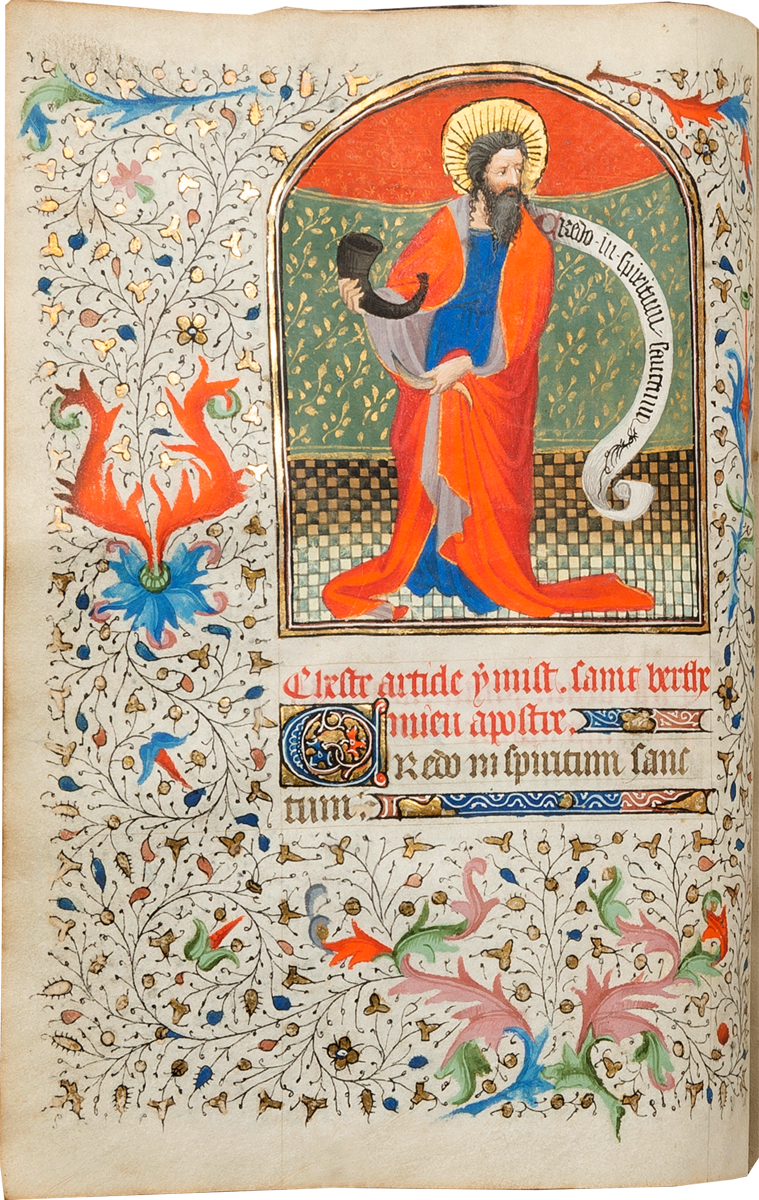 Credo · in · spiritum sanctum
Cheste article ÿ mist. saint berthe
mieu apostre.
Credo in spiritum sanc
tum.